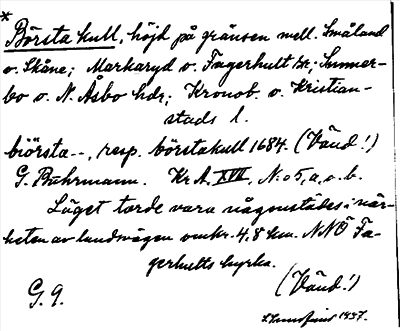 *
Börsta kull, höjd på gränsen mell. Småland
o. Skåne; Markaryd o. Fagerhult sr; Sunner-
bo o. N. Åsbo hdr; Kronob. o. Kristian-
stads l.
börsta--, resp. börstakull 1684. (Vänd!)
G. Buhrmann. Kr A, XVII, N:o 5, a, o. b.
Läget torde vara någonstädes i när-
heten av landsvägen omkr. 4,8 km. NNÖ Fa-
gerhults kyrka.
(Vänd!)
G. 9.
1937.